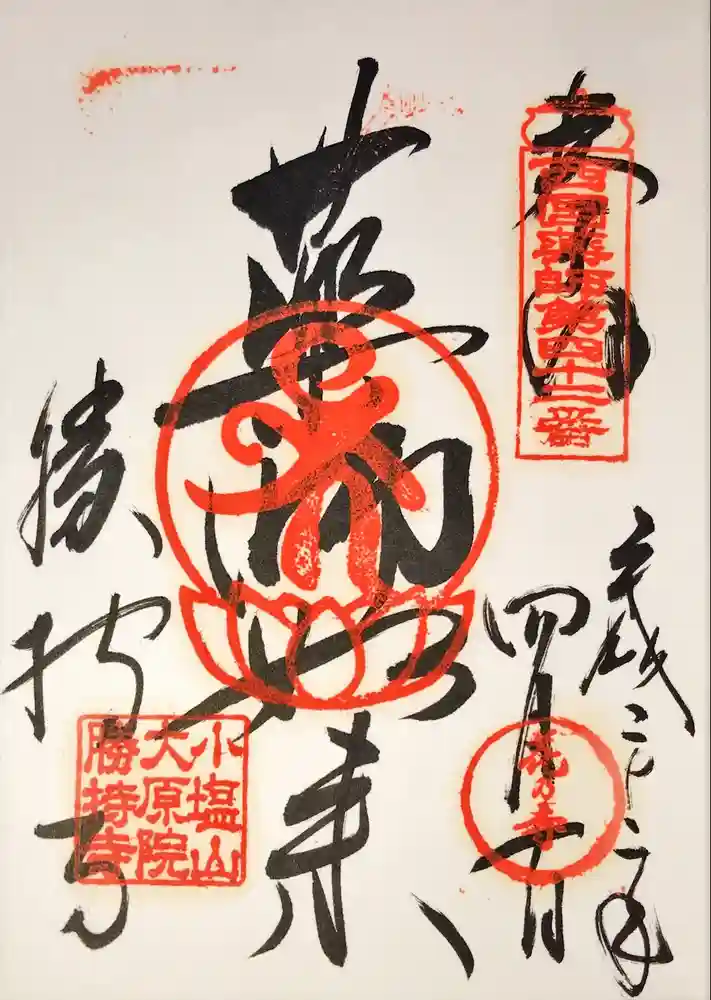 奉拝
西国薬師第四十二番
平成二十二年
四月一日
花の寺
薬師如来
勝持寺
小塩山
大原院
勝持寺